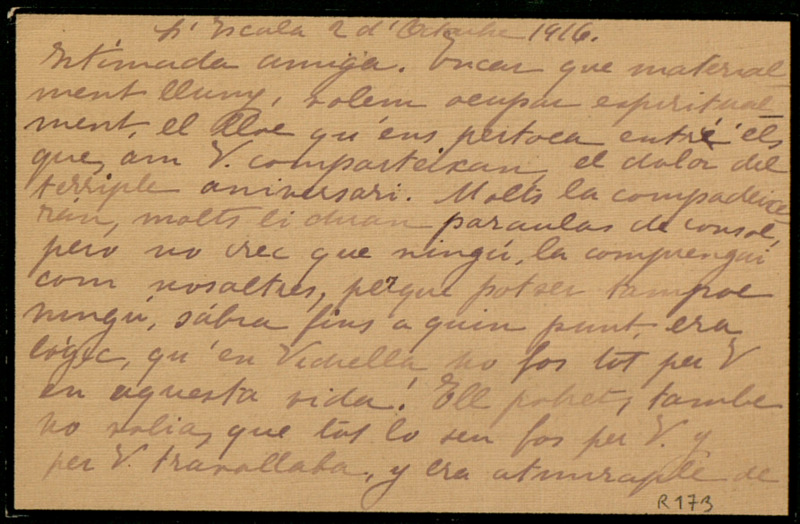 L'Escala 2 d'Octubre 1916.
Estimada amiga. Encar que material
ment lluny, volém ocupar espiritual
ment, el lloc qu'ens pertoca entre els
que, am V. comparteixan, el dolor del
terriple aniversari. Molts la compadeixe
rán, molts li diran paraulas de consol,
pero no crec que ningú, la comprengui
com nosaltres, perque potser tampoc
ningú, sábra fins a quin punt, era
lógic, qu'en Vidiella no fos tot per V
en aquesta vida! Ell pobret, tambe
no volia, que tot lo seu fos per V. y
per V. travallaba, y era atmiraple de
R 173